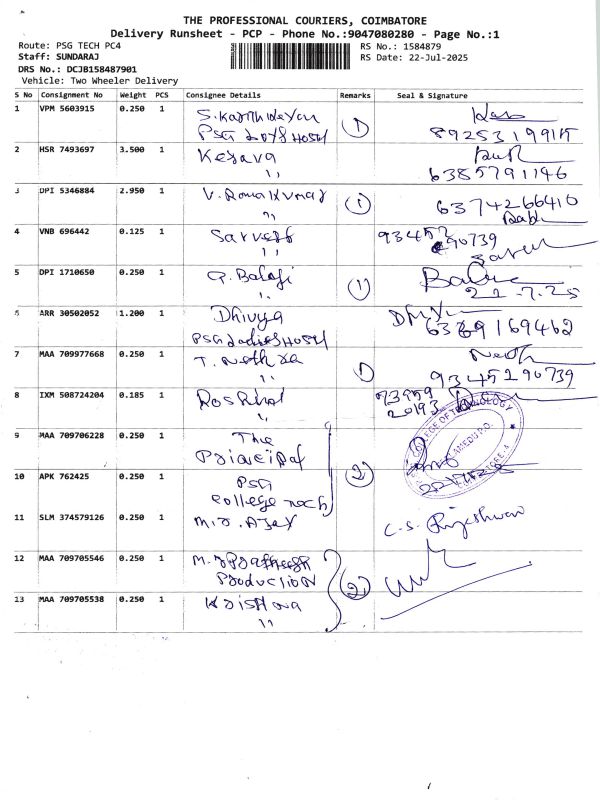 THE PROFESSIONAL COURIERS, COIMBATORE
Delivery Runsheet - PCP - Phone No.:9047080280 - Page No.:1
Route: PSG TECH PC4
RS No.: 1584879
Staff: SUNDARAJ
RS Date: 22-Jul-2025
DRS No.: DCJB158487901
Vehicle: Two Wheeler Delivery
S No Consignment No Weight PCS Consignee Details Remarks Seal & Signature
1 VPM 5603915 0.250 1 S. Karthikeyan 1
PSG Boys Hostel 8925319915
2 HSR 7493697 3.500 1 Kesava
" 6385791146
3 DPI 5346884 2.950 1 V. Ramakumar 1 6374266410
"
4 VNB 696442 0.125 1 Sarvesh 93452
" 90739
5 DPI 1710650 0.250 1 G. Balaji 1
" 22.7.25
6 ARR 30502052 1.200 1 Dhivya
PSG Ladies Hostel 6369169462
7 MAA 709977668 0.250 1 T. Nethra 1
" 9345290739
8 IXM 508724204 0.185 1 73959
" 20193
9 MAA 709706228 0.250 1 The
Principal
10 APK 762425 0.250 1 PSG 2
college Tech
11 SLM 374579126 0.250 1 M.J. Ajay C.S. Rajeshwari
12 MAA 709705546 0.250 1 2
Production
13 MAA 709705538 0.250 1 Krishna
"
COLLEGE OF TECHNOLOGY